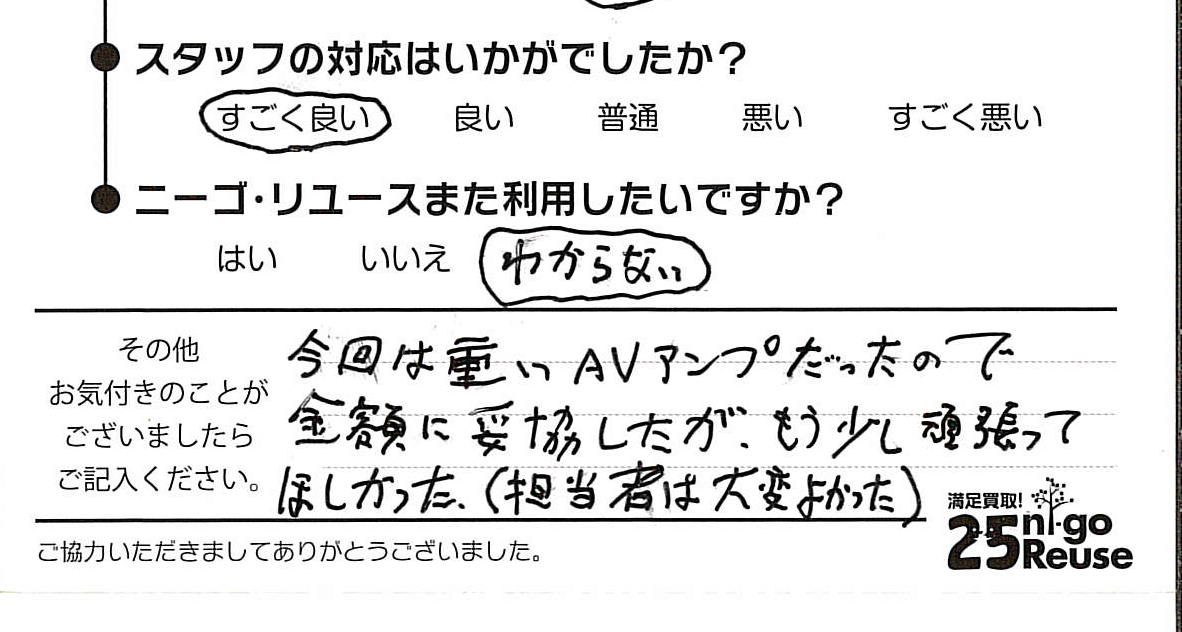 スタッフの対応はいかがでしたか?
すごく良い 良い 普通 悪い すごく悪い
ニーゴ・リユースまた利用したいですか?
はい いいえ わからない
その他
お気付きのことが
ございましたら
ご記入ください。
今回は重いAVアンプだったので
金額に妥協したが、もう少し頑張って
ほしかった、(担当者は大変よかった)
満足買取!
25 ni-go
Reuse
ご協力いただきましてありがとうございました。